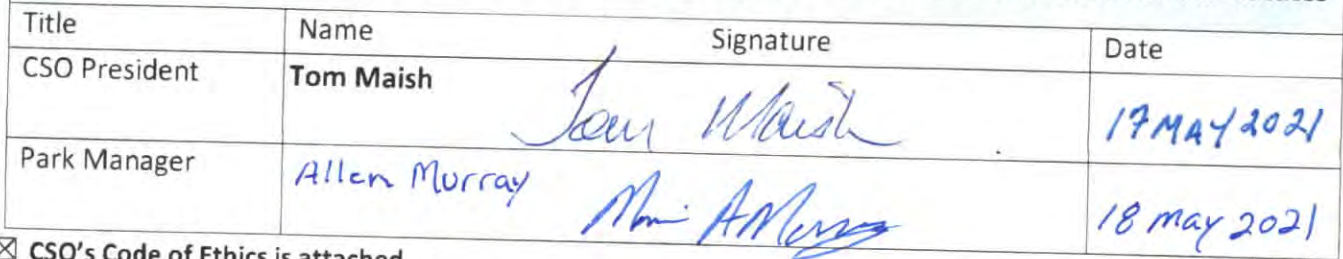 Title Name Signature Date
CSO President Tom Maish Tom Maish 17 MAY 2021
Park Manager Allen Murray A Murray 18 May 2021
☒ CSO's Code of Ethics is attached